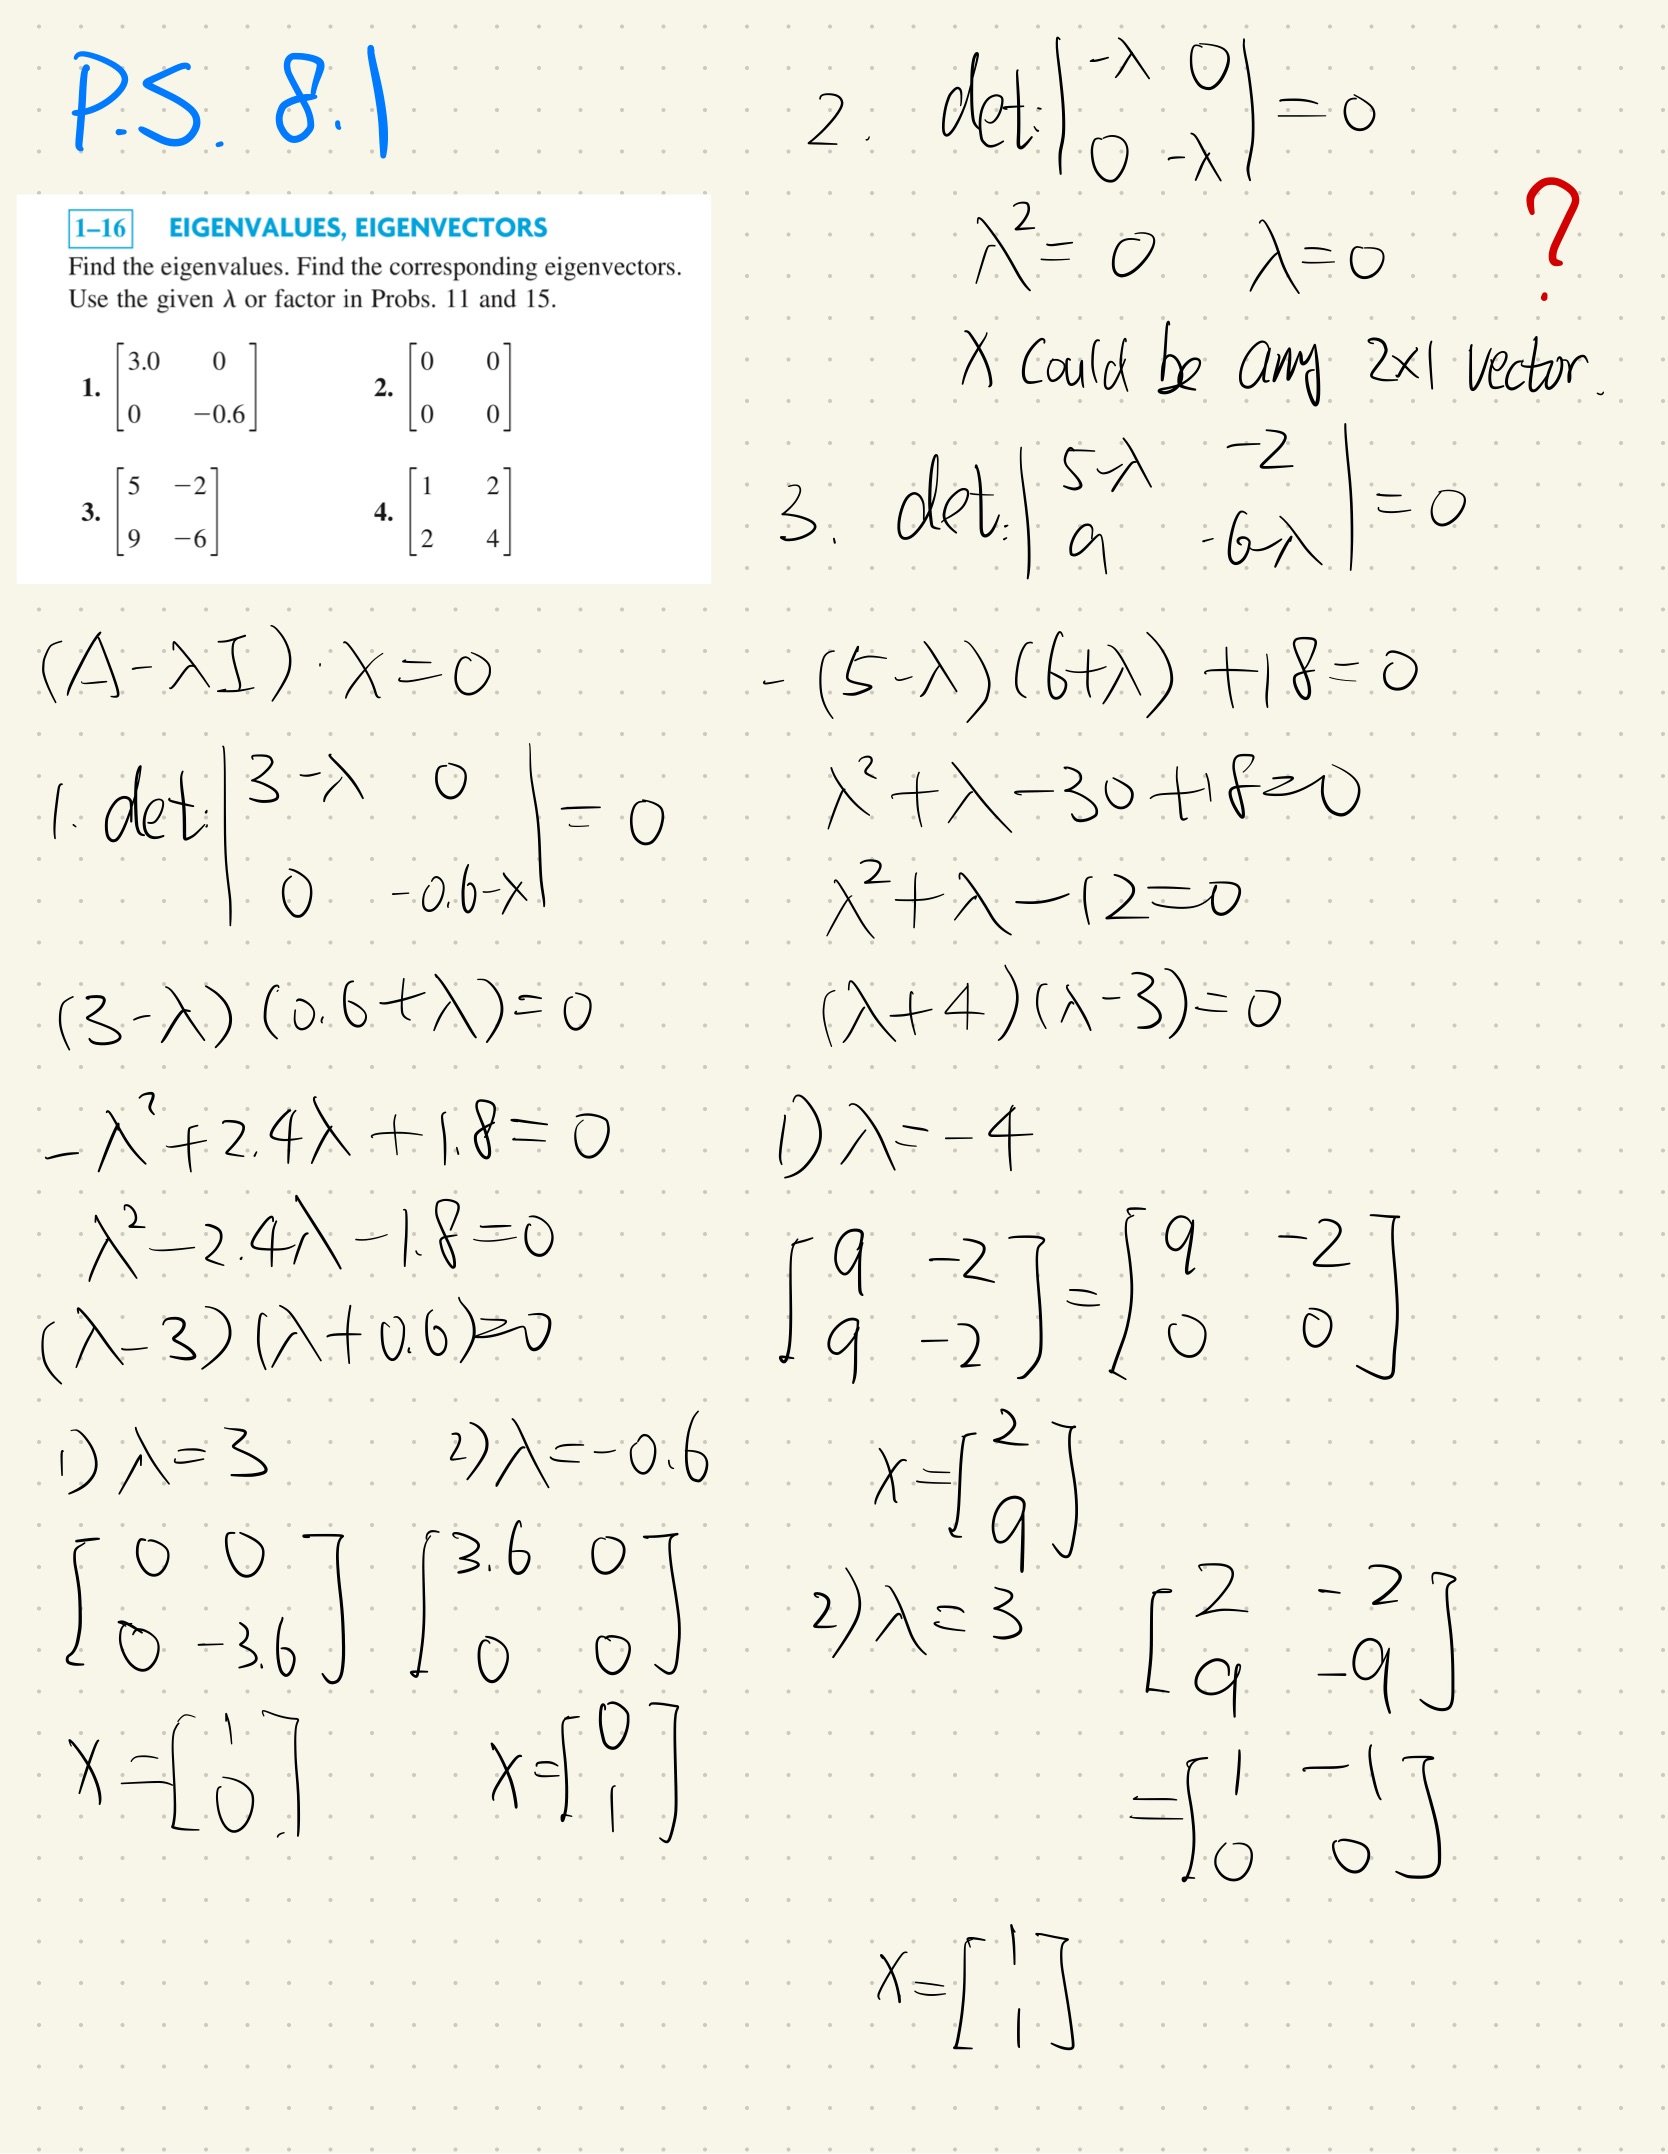 P.S. 8.1
1–16 EIGENVALUES, EIGENVECTORS
Find the eigenvalues. Find the corresponding eigenvectors.
Use the given λ or factor in Probs. 11 and 15.
1. [3.0 0
0 −0.6]
2. [0 0
0 0]
3. [5 −2
9 −6]
4. [1 2
2 4]
(A-λI)·x=0
1. det: |3-λ 0
0 -0.6-λ| = 0
(3-λ)(0.6+λ)=0
-λ²+2.4λ+1.8=0
λ²-2.4λ-1.8=0
(λ-3)(λ+0.6)=0
1) λ=3 2) λ=-0.6
[0 0
0 -3.6] [3.6 0
0 0]
x=[1
0] x=[0
1]
2. det: |-λ 0
0 -λ| = 0
λ²=0 λ=0 ?
X could be any 2×1 vector.
3. det: |5-λ -2
9 -6-λ| = 0
-(5-λ)(6+λ)+18=0
λ²+λ-30+18=0
λ²+λ-12=0
(λ+4)(λ-3)=0
1) λ=-4
[9 -2
9 -2] = [9 -2
0 0]
x=[2
9]
2) λ=3 [2 -2
9 -9]
=[1 -1
0 0]
x=[1
1]